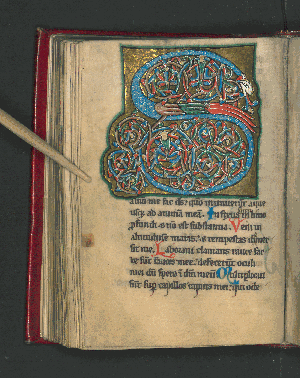 uum me fac ds: qm̄ intrauerūt aque
usq; ad animā meā. Infixus sū in limo
pfundi: & nō est substantia. Veni in
altitudinē maris: & tempestas dimer
sit me. Laboraui clamans rauce fac
te sūt fauces mee: defecerūt oculi
mei dū spero ī dm̄ meū. Multiplicati
sūt sup capillos capitis mei: qui ode